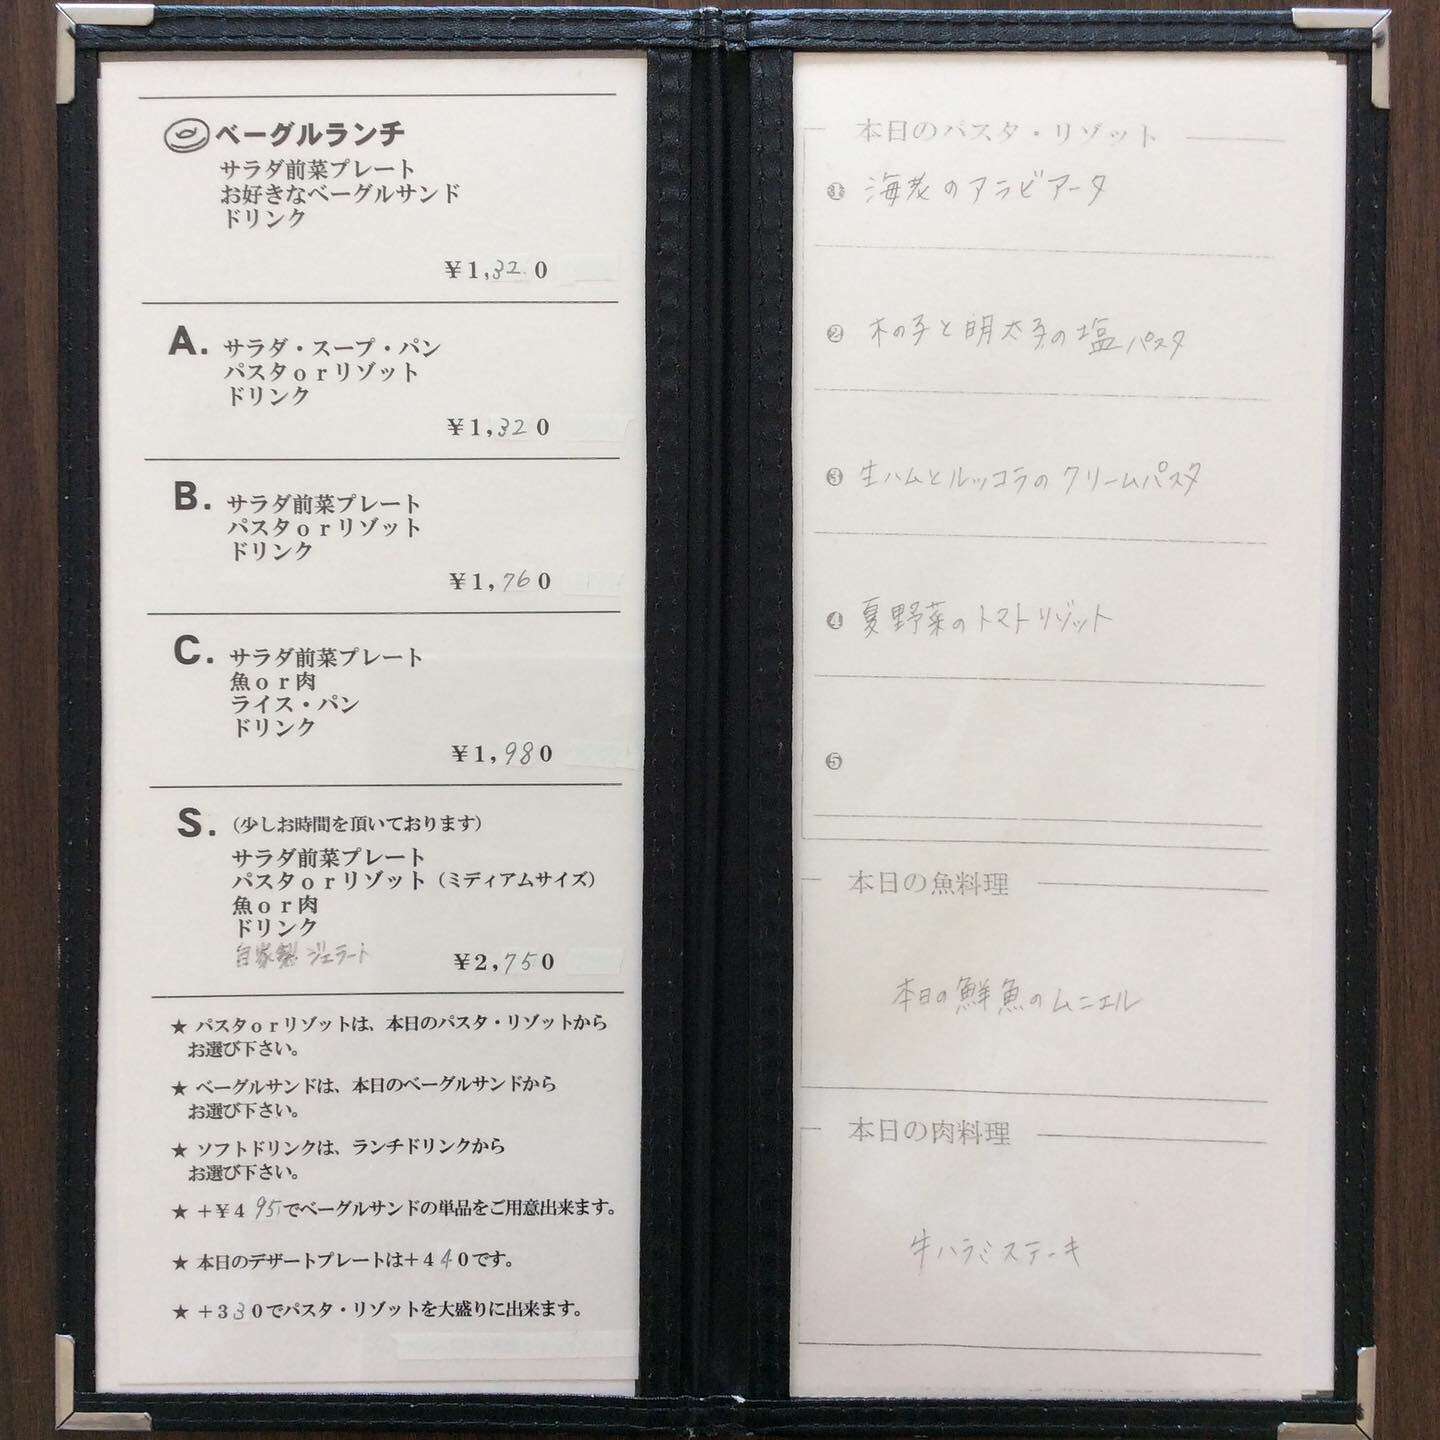 ベーグルランチ
サラダ前菜プレート
お好きなベーグルサンド
ドリンク
¥1,320
A. サラダ・スープ・パン
パスタorリゾット
ドリンク
¥1,320
B. サラダ前菜プレート
パスタorリゾット
ドリンク
¥1,760
C. サラダ前菜プレート
魚or肉
ライス・パン
ドリンク
¥1,980
S. (少しお時間を頂いております)
サラダ前菜プレート
パスタorリゾット(ミディアムサイズ)
魚or肉
ドリンク
自家製ジェラート
¥2,750
★ パスタorリゾットは、本日のパスタ・リゾットから
お選び下さい。
★ ベーグルサンドは、本日のベーグルサンドから
お選び下さい。
★ ソフトドリンクは、ランチドリンクから
お選び下さい。
★ +¥495でベーグルサンドの単品をご用意出来ます。
★ 本日のデザートプレートは+440です。
★ +330でパスタ・リゾットを大盛りに出来ます。
本日のパスタ・リゾット
❶ 海老のアラビアータ
❷ 木の子と明太子の塩パスタ
❸ 生ハムとルッコラのクリームパスタ
❹ 夏野菜のトマトリゾット
❺
本日の魚料理
本日の鮮魚のムニエル
本日の肉料理
牛ハラミステーキ